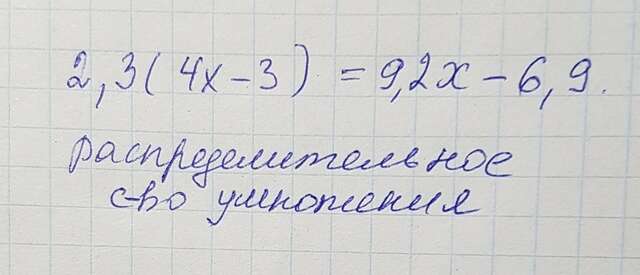 2,3(4x-3) = 9,2x - 6,9.
распределительное
с-во умножения